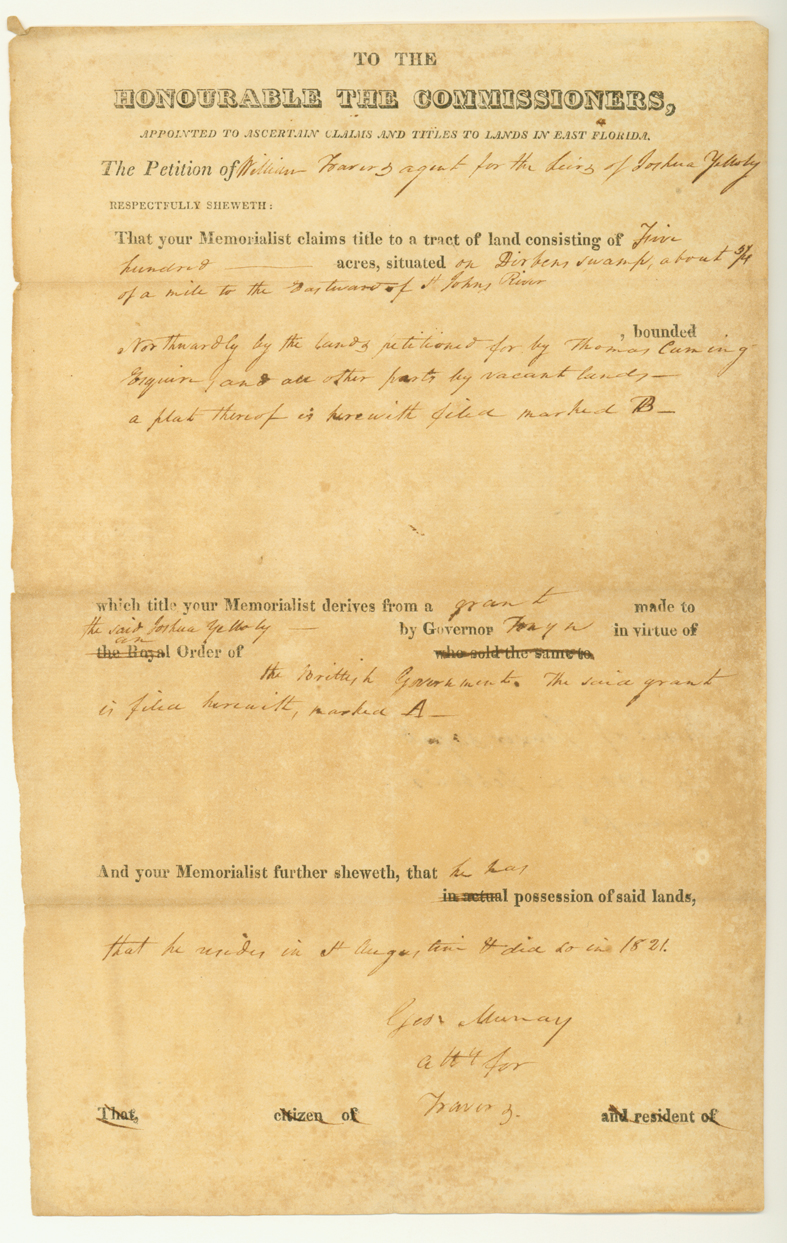 TO THE
HONOURABLE THE COMMISSIONERS,
APPOINTED TO ASCERTAIN CLAIMS AND TITLES TO LANDS IN EAST FLORIDA.
The Petition of William Travers agent for the heirs of Joshua Yelloby
RESPECTFULLY SHEWETH:
That your Memorialist claims title to a tract of land consisting of Five
hundred acres, situated on Dirbens swamp, about 3/4
of a mile to the Eastward of St Johns River
, bounded
Northwardly by the lands petitioned for by Thomas Cuming
Esquire, and all other parts by vacant lands —
a plat thereof is herewith filed marked B —
which title your Memorialist derives from a grant made to
the said Joshua Yelloby — by Governor Tonyn in virtue of
an
the Royal Order of who sold the same to
the Brittish Government. The said grant
is filed herewith, marked A —
And your Memorialist further sheweth, that he has
in actual possession of said lands,
that he resides in St Augustine & did so in 1821.
Geo. Murray
att for
Travers.
That, citizen of and resident of